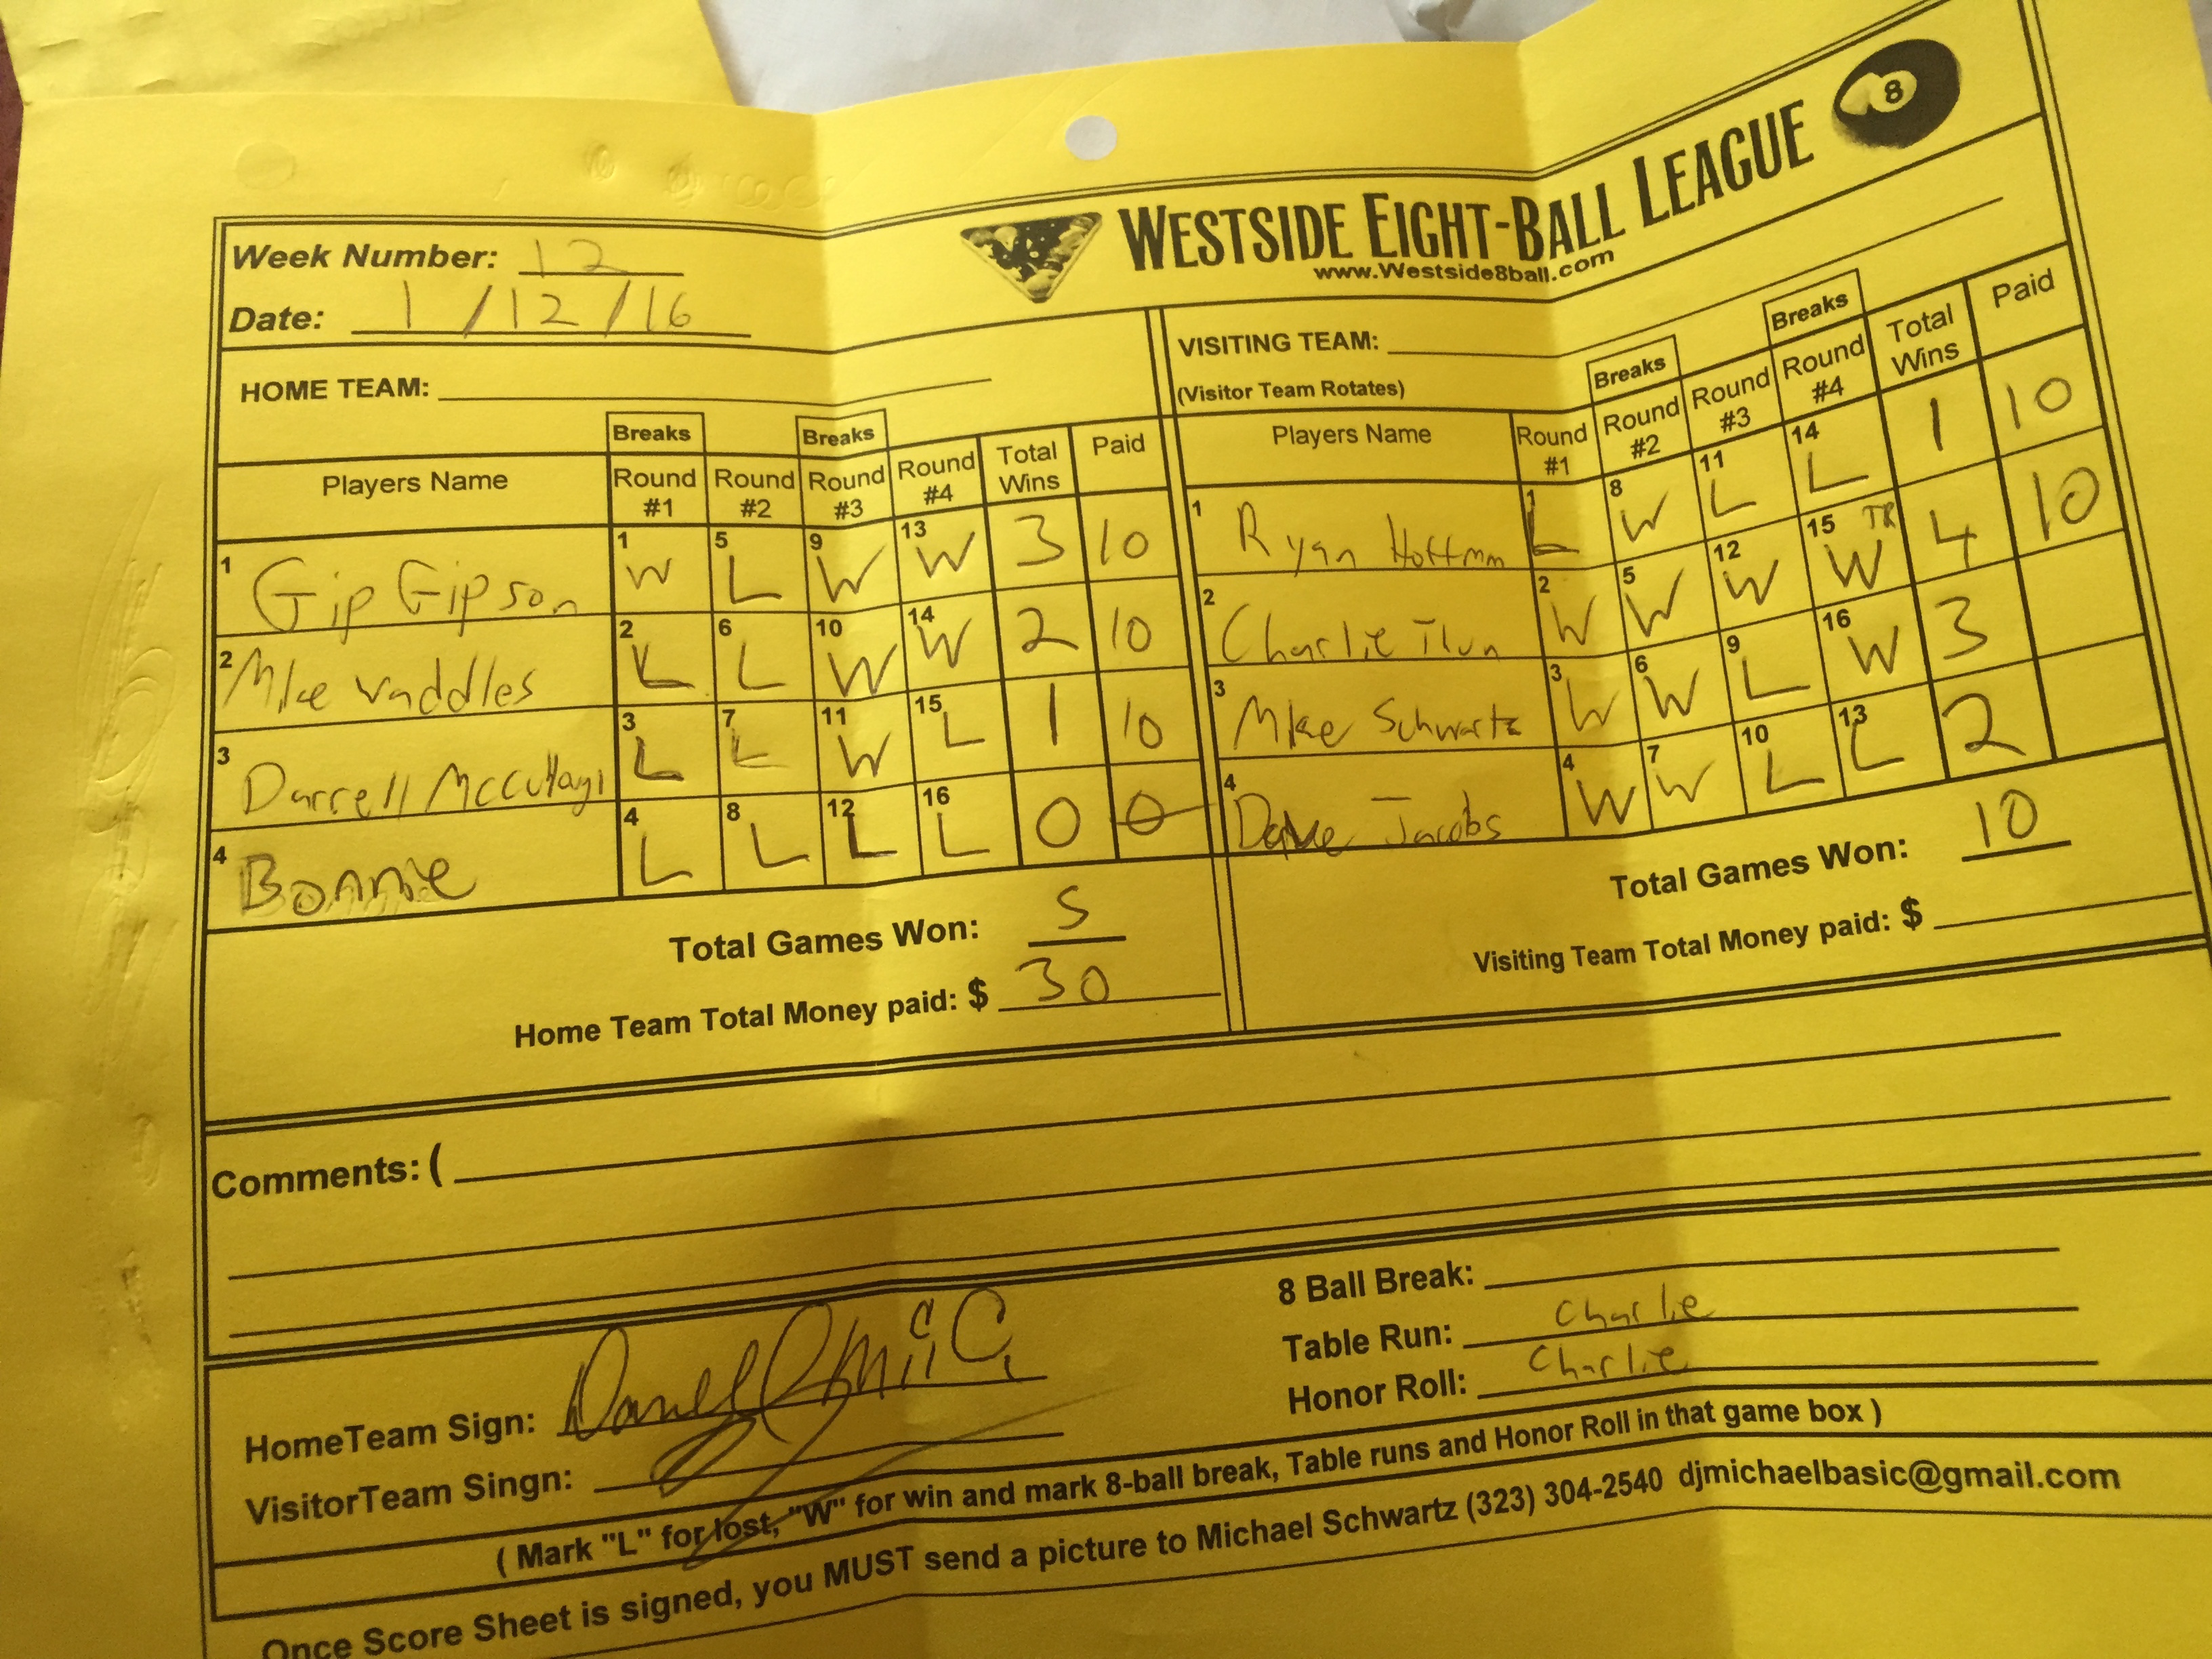 WESTSIDE EIGHT-BALL LEAGUE 8
www.Westside8ball.com
Week Number: 12
Date: 1/12/16
HOME TEAM:
Breaks Breaks
Players Name Round #1 Round #2 Round #3 Round #4 Total Wins Paid
1 Gip Gipson 1 W 5 L 9 W 13 W 3 10
2 Mike Waddles 2 L 6 L 10 W 14 W 2 10
3 Darrell 3 L 7 L 11 W 15 L 1 10
4 Bonnie 4 L 8 L 12 L 16 L 0 0
Total Games Won: 5
Home Team Total Money paid: $ 30
VISITING TEAM:
(Visitor Team Rotates)
Breaks Breaks
Players Name Round #1 Round #2 Round #3 Round #4 Total Wins Paid
1 Ryan 1 L 8 W 11 L 14 L 1 10
2 Charlie 2 W 5 W 12 W 15 TR W 4 10
3 Mike Schwartz 3 W 6 W 9 L 16 W 3
4 Dave Jacobs 4 W 7 W 10 L 13 L 2
Total Games Won: 10
Visiting Team Total Money paid: $
Comments: (
8 Ball Break:
Table Run: Charlie
Honor Roll: Charlie
HomeTeam Sign:
VisitorTeam Singn:
( Mark "L" for lost, "W" for win and mark 8-ball break, Table runs and Honor Roll in that game box )
Once Score Sheet is signed, you MUST send a picture to Michael Schwartz (323) 304-2540 djmichaelbasic@gmail.com